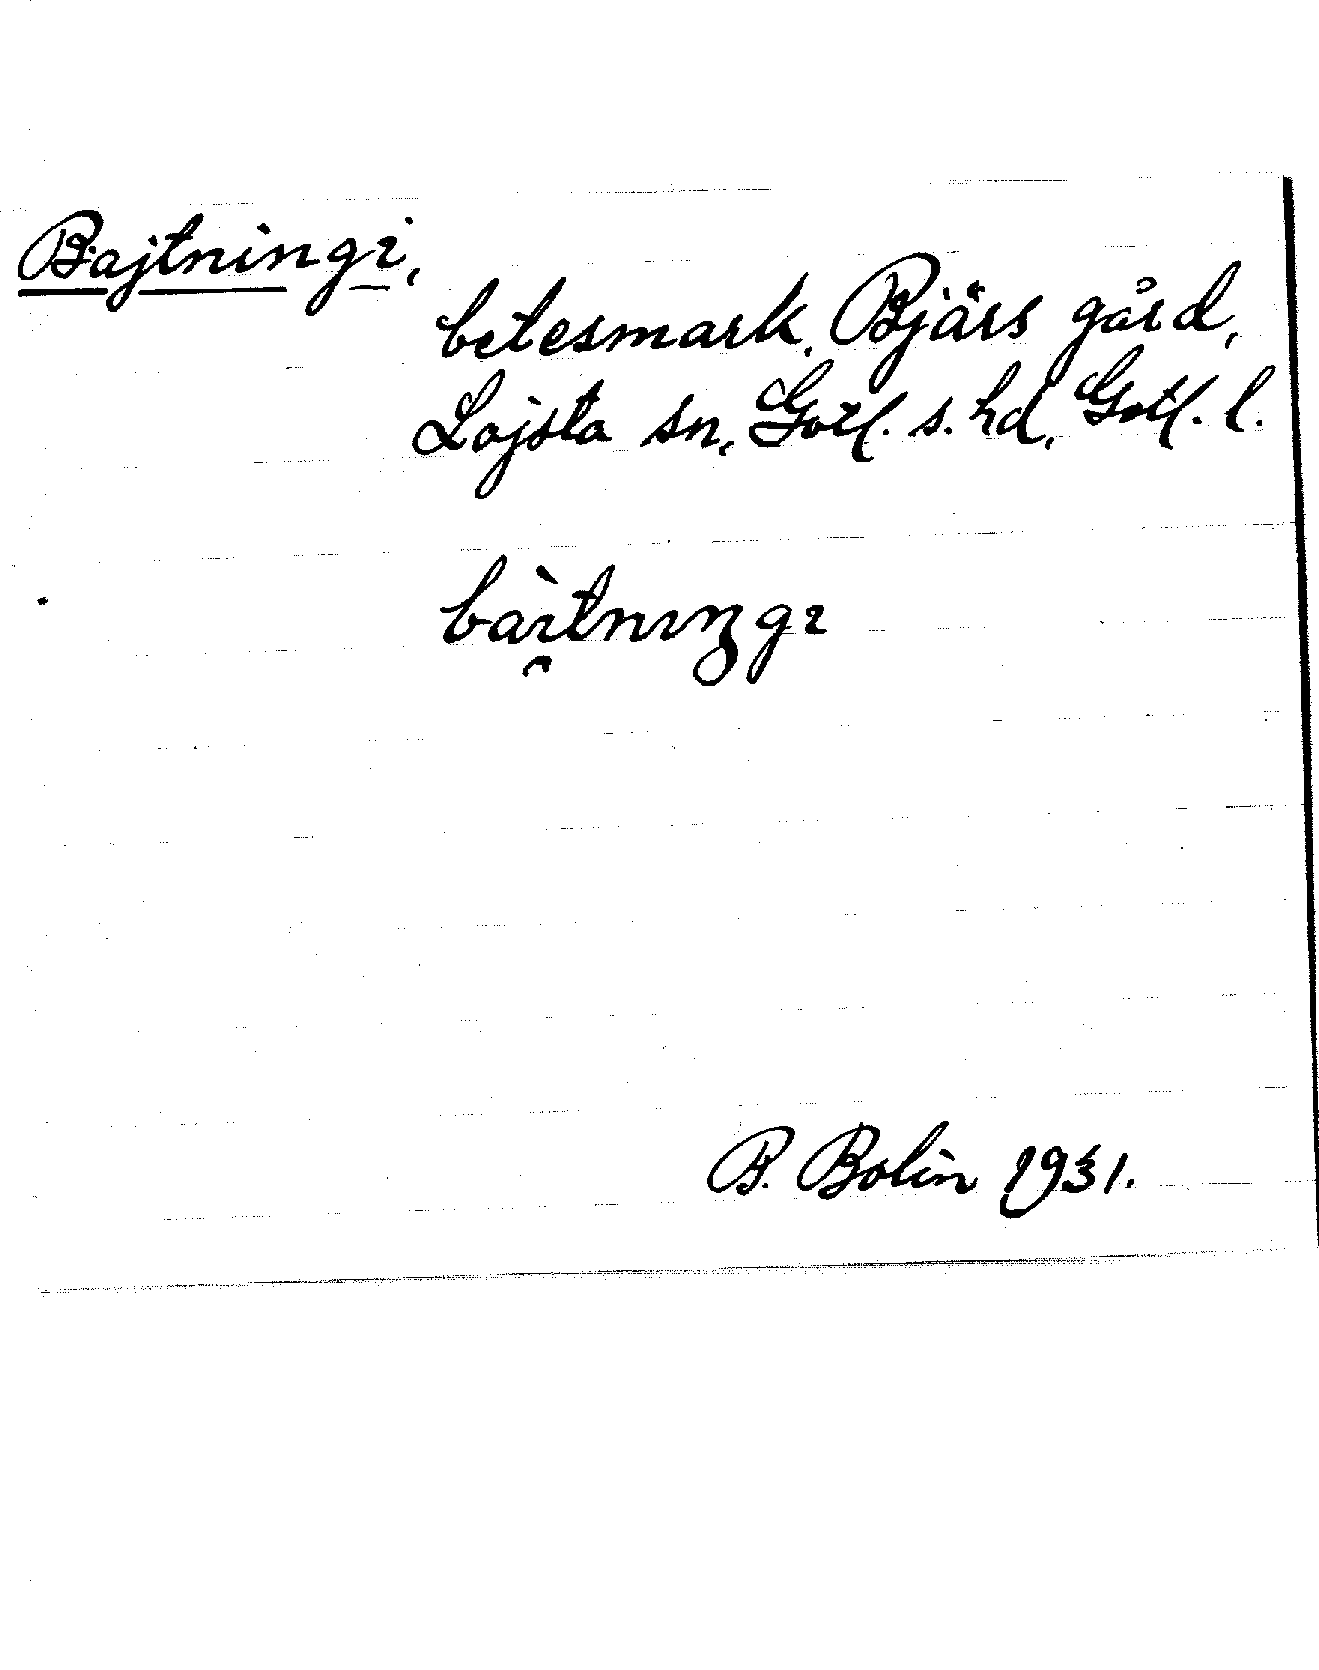 Bajtningi,
betesmark, Bjärs gård,
Lojsta sn, Gotl. s. hd, Gotl. l.
bàı̯tnıŋgı
B. Bolin 1931.